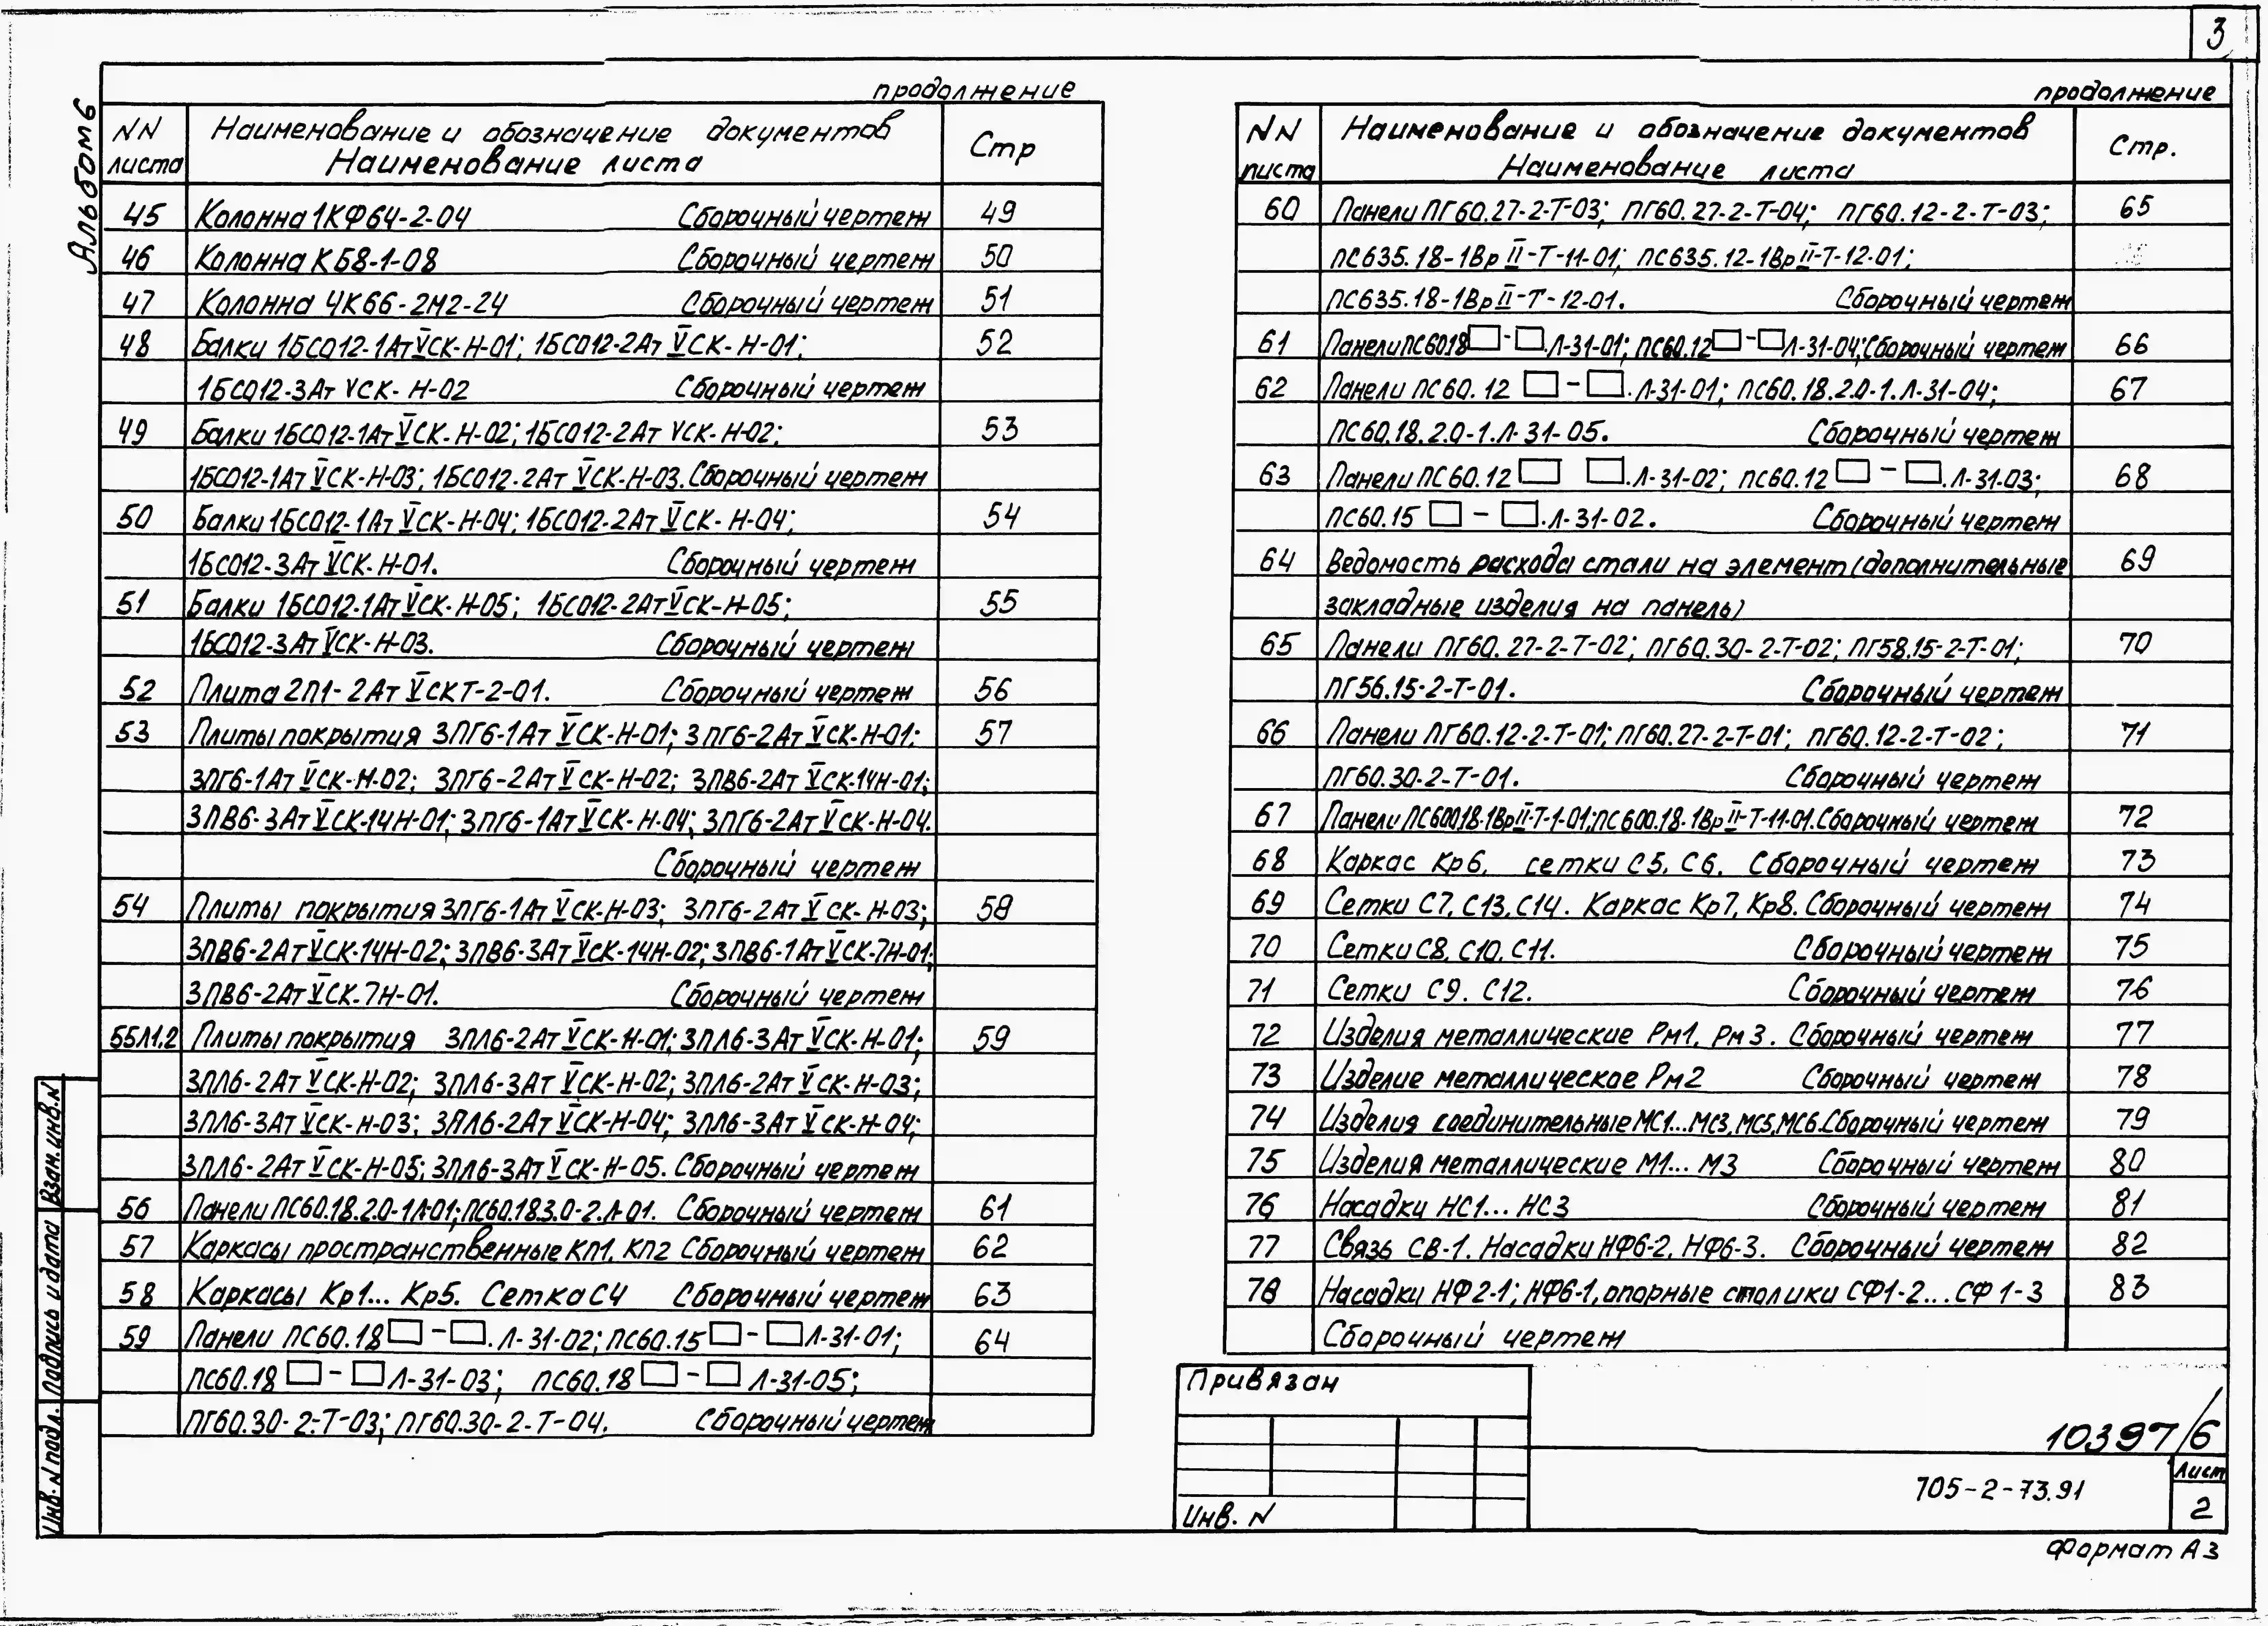 3
Альбом 6
продолжение
NN листа
Наименование и обозначение документов
Наименование листа
Стр
45 Колонна 1КФ64-2-04 Сборочный чертеж 49
46 Колонна КБ8-1-08 Сборочный чертеж 50
47 Колонна 4К66-2М2-24 Сборочный чертеж 51
48 Балки 1БСО12-1АтⅤСК-Н-01; 1БСО12-2АтⅤСК-Н-01; 52
1БСО12-3АтⅤСК-Н-02 Сборочный чертеж
49 Балки 1БСО12-1АтⅤСК-Н-02; 1БСО12-2АтⅤСК-Н-02; 53
1БСО12-1АтⅤСК-Н-03; 1БСО12-2АтⅤСК-Н-03. Сборочный чертеж
50 Балки 1БСО12-1АтⅤСК-Н-04; 1БСО12-2АтⅤСК-Н-04; 54
1БСО12-3АтⅤСК-Н-01. Сборочный чертеж
51 Балки 1БСО12-1АтⅤСК-Н-05; 1БСО12-2АтⅤСК-Н-05; 55
1БСО12-3АтⅤСК-Н-03. Сборочный чертеж
52 Плита 2П1-2АтⅤСКТ-2-01. Сборочный чертеж 56
53 Плиты покрытия 3ПГ6-1АтⅤСК-Н-01; 3ПГ6-2АтⅤСК-Н-01; 57
3ПГ6-1АтⅤСК-Н-02; 3ПГ6-2АтⅤСК-Н-02; 3ПВ6-2АтⅤСК-14Н-01;
3ПВ6-3АтⅤСК-14Н-01; 3ПГ6-1АтⅤСК-Н-04; 3ПГ6-2АтⅤСК-Н-04.
Сборочный чертеж
54 Плиты покрытия 3ПГ6-1АтⅤСК-Н-03; 3ПГ6-2АтⅤСК-Н-03; 58
3ПВ6-2АтⅤСК-14Н-02; 3ПВ6-3АтⅤСК-14Н-02; 3ПВ6-1АтⅤСК-7Н-01;
3ПВ6-2АтⅤСК-7Н-01. Сборочный чертеж
55Л1.2 Плиты покрытия 3ПЛ6-2АтⅤСК-Н-01; 3ПЛ6-3АтⅤСК-Н-01; 59
3ПЛ6-2АтⅤСК-Н-02; 3ПЛ6-3АтⅤСК-Н-02; 3ПЛ6-2АтⅤСК-Н-03;
3ПЛ6-3АтⅤСК-Н-03; 3ПЛ6-2АтⅤСК-Н-04; 3ПЛ6-3АтⅤСК-Н-04;
3ПЛ6-2АтⅤСК-Н-05; 3ПЛ6-3АтⅤСК-Н-05. Сборочный чертеж
56 Панели ПС60.18.2.0-1Л-01; ПС60.18.3.0-2.Л-01. Сборочный чертеж 61
57 Каркасы пространственные КП1, КП2 Сборочный чертеж 62
58 Каркасы Кр1... Кр5. Сетка С4 Сборочный чертеж 63
59 Панели ПС60.18□-□.Л-31-02; ПС60.15□-□Л-31-01; 64
ПС60.18□-□Л-31-03; ПС60.18□-□Л-31-05;
ПГ60.30-2-Т-03; ПГ60.30-2-Т-04. Сборочный чертеж
продолжение
NN листа
Наименование и обозначение документов
Наименование листа
Стр.
60 Панели ПГ60.27-2-Т-03; ПГ60.27-2-Т-04; ПГ60.12-2-Т-03; 65
ПС635.18-1ВрⅡ-Т-11-01; ПС635.12-1ВрⅡ-Т-12-01;
ПС635.18-1ВрⅡ-Т-12-01. Сборочный чертеж
61 Панели ПС6018□-□.Л-31-01; ПС60.12□-□Л-31-04; Сборочный чертеж 66
62 Панели ПС60.12□-□.Л-31-01; ПС60.18.2.0-1.Л-31-04; 67
ПС60.18.2.0-1.Л-31-05. Сборочный чертеж
63 Панели ПС60.12□ □.Л-31-02; ПС60.12□-□.Л-31-03; 68
ПС60.15□-□.Л-31-02. Сборочный чертеж
64 Ведомость расхода стали на элемент (дополнительные 69
закладные изделия на панель)
65 Панели ПГ60.27-2-Т-02; ПГ60.30-2-Т-02; ПГ58.15-2-Т-01; 70
ПГ56.15-2-Т-01. Сборочный чертеж
66 Панели ПГ60.12-2-Т-01; ПГ60.27-2-Т-01; ПГ60.12-2-Т-02; 71
ПГ60.30-2-Т-01. Сборочный чертеж
67 Панели ПС600.18-1ВрⅡ-Т-1-01; ПС600.18-1ВрⅡ-Т-11-01. Сборочный чертеж 72
68 Каркас Кр6, сетки С5, С6. Сборочный чертеж 73
69 Сетки С7, С13, С14. Каркас Кр7, Кр8. Сборочный чертеж 74
70 Сетки С8, С10, С11. Сборочный чертеж 75
71 Сетки С9. С12. Сборочный чертеж 76
72 Изделия металлические Рм1, Рм3. Сборочный чертеж 77
73 Изделие металлическое Рм2 Сборочный чертеж 78
74 Изделия соединительные МС1...МС3, МС5, МС6. Сборочный чертеж 79
75 Изделия металлические М1... М3 Сборочный чертеж 80
76 Насадки НС1... НС3 Сборочный чертеж 81
77 Связь СВ-1. Насадки НФ6-2, НФ6-3. Сборочный чертеж 82
78 Насадки НФ2-1; НФ6-1, опорные столики СФ1-2...СФ1-3 83
Сборочный чертеж
Привязан
Инв. N
10397/6
705-2-73.91
Лист
2
Формат А3
Взам.инв.N
Подпись и дата
Инв. N подл.